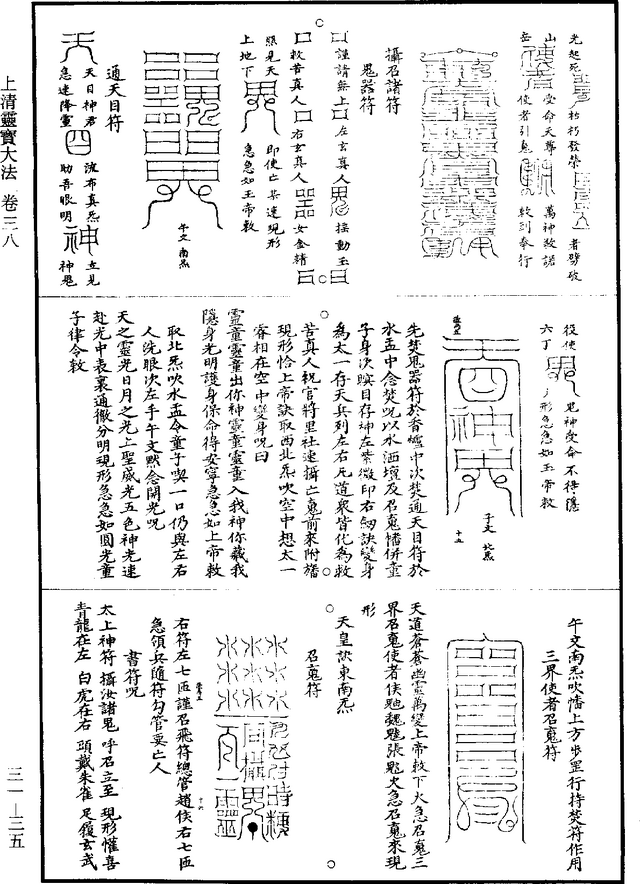 光起死 枯朽發榮 者劈破
山 受命天尊 萬神敬諾
岳 使者引魂 敕到奉行
攝召諸符
鬼器符
謹請無上 左玄真人 搖動玉
救苦真人 右玄真人 女金精
照見天 即使亡某速現形
上地下 急急如玉帝敕
午文南炁
通天目符
天目神君 流布真炁 立見
急速降靈 助吾眼明 神鬼
役使 鬼神受命不得隱
六丁 形急急如玉帝敕
子文北炁
十五
先焚鬼器符於香爐中次焚通天目符於
水盂中念焚呪以水洒壇及召魂幡併童
子身次瞑目存坤左紫微印右劒訣變身
為太一存天兵列左右凡道衆皆化為救
苦真人祝官將里社速攝亡魂前來附旛
現形恰上帝訣取西北炁吹空中想太一
睿相在空中變身呪曰
靈童靈童出你神靈童靈童入我神你藏我
隱身光明護身保命得安寧急急如上帝敕
取北炁吹水盂令童子喫一口仍與左右
人洗眼次左手午文默念開光呪
天之靈光日月之光上聖威光五色神光速
赴光中表裏通徹分明現形急急如圓光童
子律令敕
午文南炁吹幡上方步罡行持焚符作用
三界使者召魂符
天道蒼蒼幽靈萬變上帝敕下火急召魂三
界召魂使者侯 魏 張 火急召魂來現
形
天皇訣東南炁
召魂符
十六
右符左七匝謹召飛符總管趙侯右七匝
急領兵隨符勾管要亡人
書符呪
太上神符 攝汝諸鬼 呼召立至 現形懽喜
青龍在左 白虎在右 頭戴朱雀 足履玄武
上清靈寶大法 卷三八
三一—三五